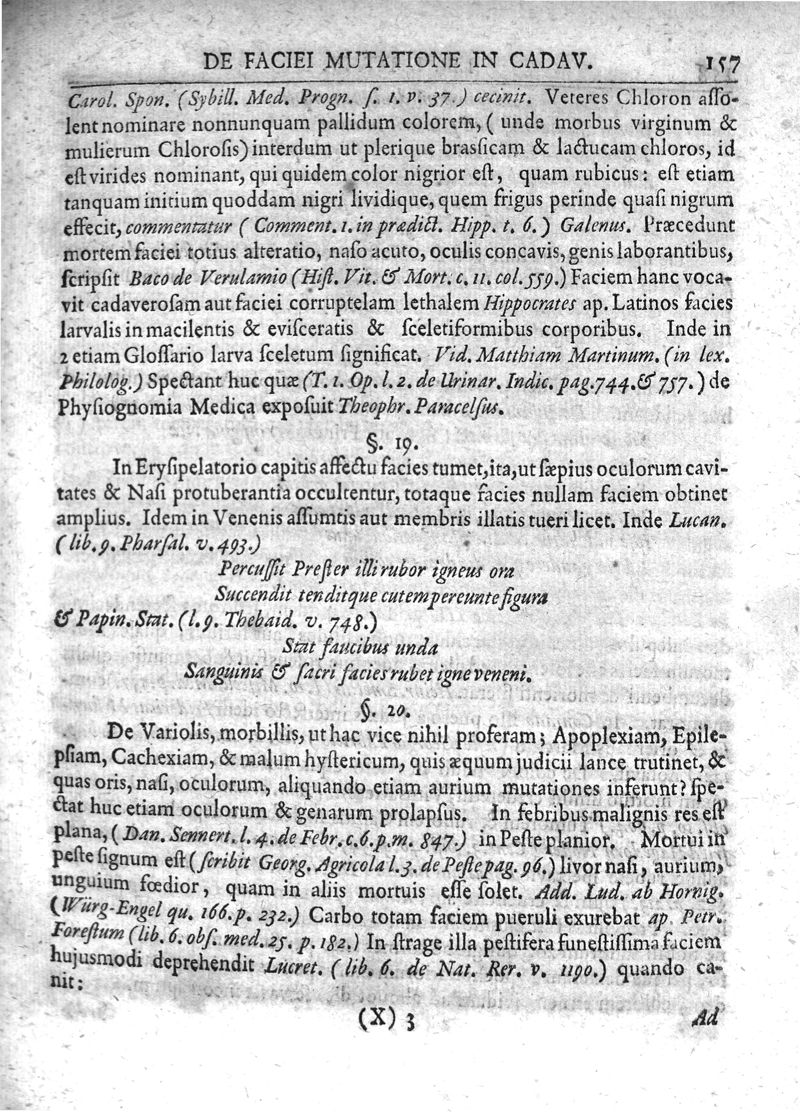 DE FACIEI MUTATIONE IN CADAV. 157
Carol. Spon. (Sybill. Med. Progn. ſ. 1. v. 37.) cecinit. Veteres Chloron aſſo-
lent nominare nonnunquam pallidum colorem, ( unde morbus virginum &
mulierum Chloroſis) interdum ut plerique braſſicam & lactucam chloros, id
eſt virides nominant, qui quidem color nigrior eſt, quam rubicus: eſt etiam
tanquam initium quoddam nigri lividique, quem frigus perinde quaſi nigrum
effecit, commentatur ( Comment. 1. in prædict. Hipp. t. 6. ) Galenus. Præcedunt
mortem faciei totius alteratio, naſo acuto, oculis concavis, genis laborantibus,
ſcripſit Baco de Verulamio (Hiſt. Vit. & Mort. c. 11. col. 559.) Faciem hanc voca-
vit cadaveroſam aut faciei corruptelam lethalem Hippocrates ap. Latinos facies
larvalis in macilentis & eviſceratis & ſceletiformibus corporibus. Inde in
2 etiam Gloſſario larva ſceletum ſignificat. Vid. Matthiam Martinum. (in lex.
Philolog.) Spectant huc quæ (T. 1. Op. l. 2. de Urinar. Indic. pag. 744. & 757. ) de
Phyſiognomia Medica expoſuit Theophr. Paracelſus.
§. 19.
In Eryſipelatorio capitis affectu facies tumet, ita, ut ſæpius oculorum cavi-
tates & Naſi protuberantia occultentur, totaque facies nullam faciem obtinet
amplius. Idem in Venenis aſſumtis aut membris illatis tueri licet. Inde Lucan.
( lib. 9. Pharſal. v. 493.)
Percuſſit Preſter illi rubor igneus ora
Succendit tenditque cutem pereunte figura
& Papin. Stat. (l. 9. Thebaid. v. 748.)
Stat faucibus unda
Sanguinis & ſacri facies rubet igne veneni.
§. 20.
De Variolis, morbillis, ut hac vice nihil proferam; Apoplexiam, Epile-
pſiam, Cachexiam, & malum hyſtericum, quis æquum judicii lance trutinet, &
quas oris, naſi, oculorum, aliquando etiam aurium mutationes inferunt? ſpe-
ctat huc etiam oculorum & genarum prolapſus. In febribus malignis res eſt
plana, ( Dan. Sennert. l. 4. de Febr. c. 6. p. m. 847.) in Peſte planior. Mortui in
peſte ſignum eſt (ſcribit Georg. Agricola l. 3. de Peſte pag. 96.) livor naſi, aurium,
unguium fœdior, quam in aliis mortuis eſſe ſolet. Add. Lud. ab Hornig.
(Würg-Engel qu. 166. p. 232.) Carbo totam faciem pueruli exurebat ap. Petr.
Foreſtum (lib. 6. obſ. med. 25. p. 182.) In ſtrage illa peſtifera funeſtiſſima faciem
hujusmodi deprehendit Lucret. ( lib. 6. de Nat. Rer. v. 1190.) quando ca-
nit:
(X) 3 Ad